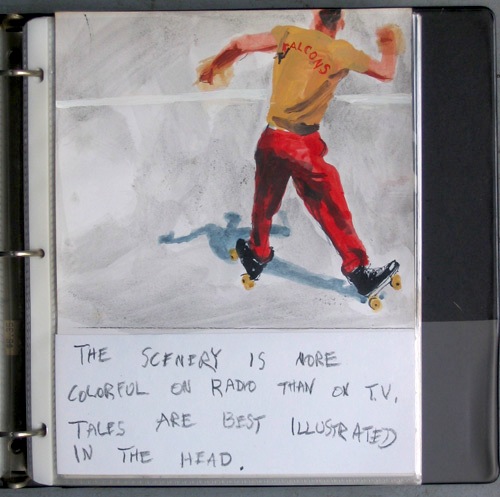 FALCONS
THE SCENERY IS MORE
COLORFUL ON RADIO THAN ON T.V.
TALES ARE BEST ILLUSTRATED
IN THE HEAD.